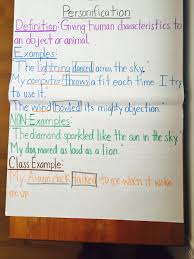 Personification
Definition: Giving human characteristics to
an object or animal.
Examples:
The lightning danced across the sky.
My computer throws a fit each time I try
to use it.
The wind howled its mighty objection.
NON-Examples:
The diamond sparkled like the sun in the sky.
My dog moved as loud as a lion.
Class Example:
My Alarm clock talked to me when it woke
me up.